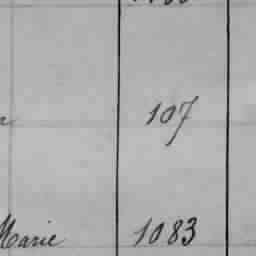 107
Marie 1083